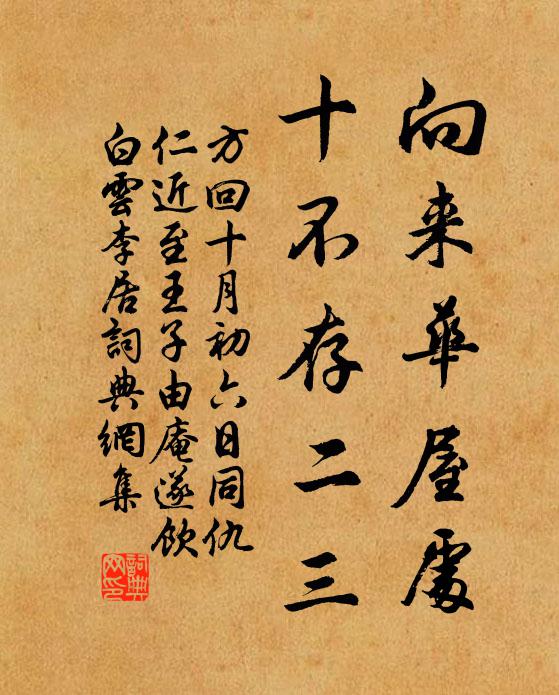 向来華屋處
十不存二三
方回十月初六日同仇
仁近至王子由庵遂飲
白雲李居詞典網集
詞典网印